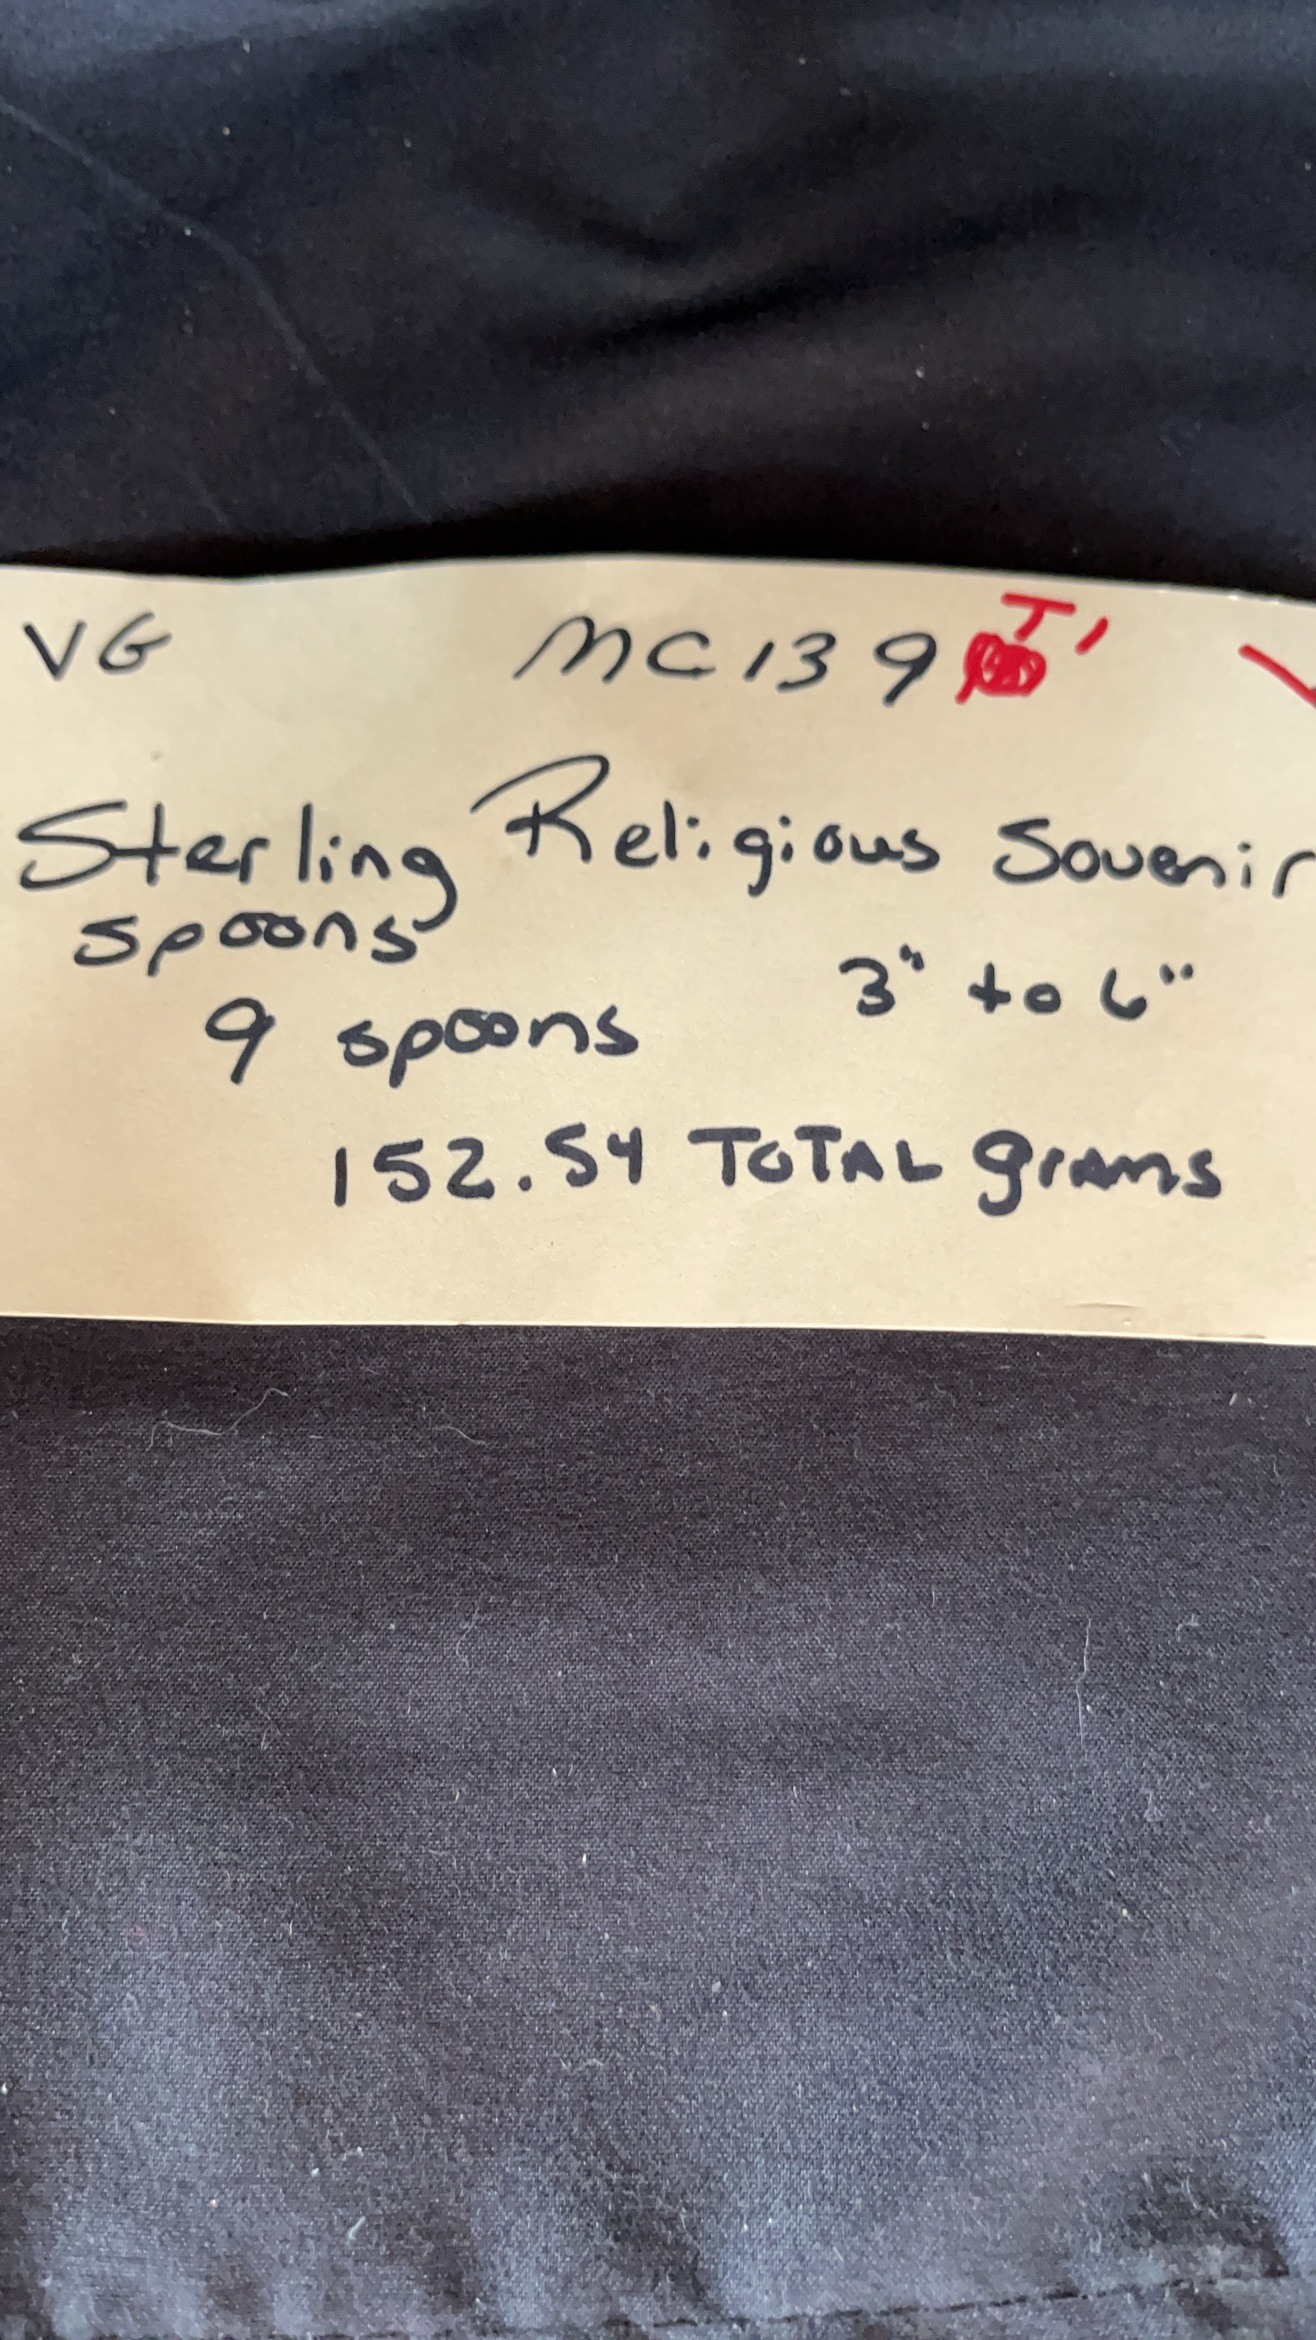 VG MC139 T1
Sterling Religious Souvenir
spoons
9 spoons 3" to 6"
152.54 TOTAL grams